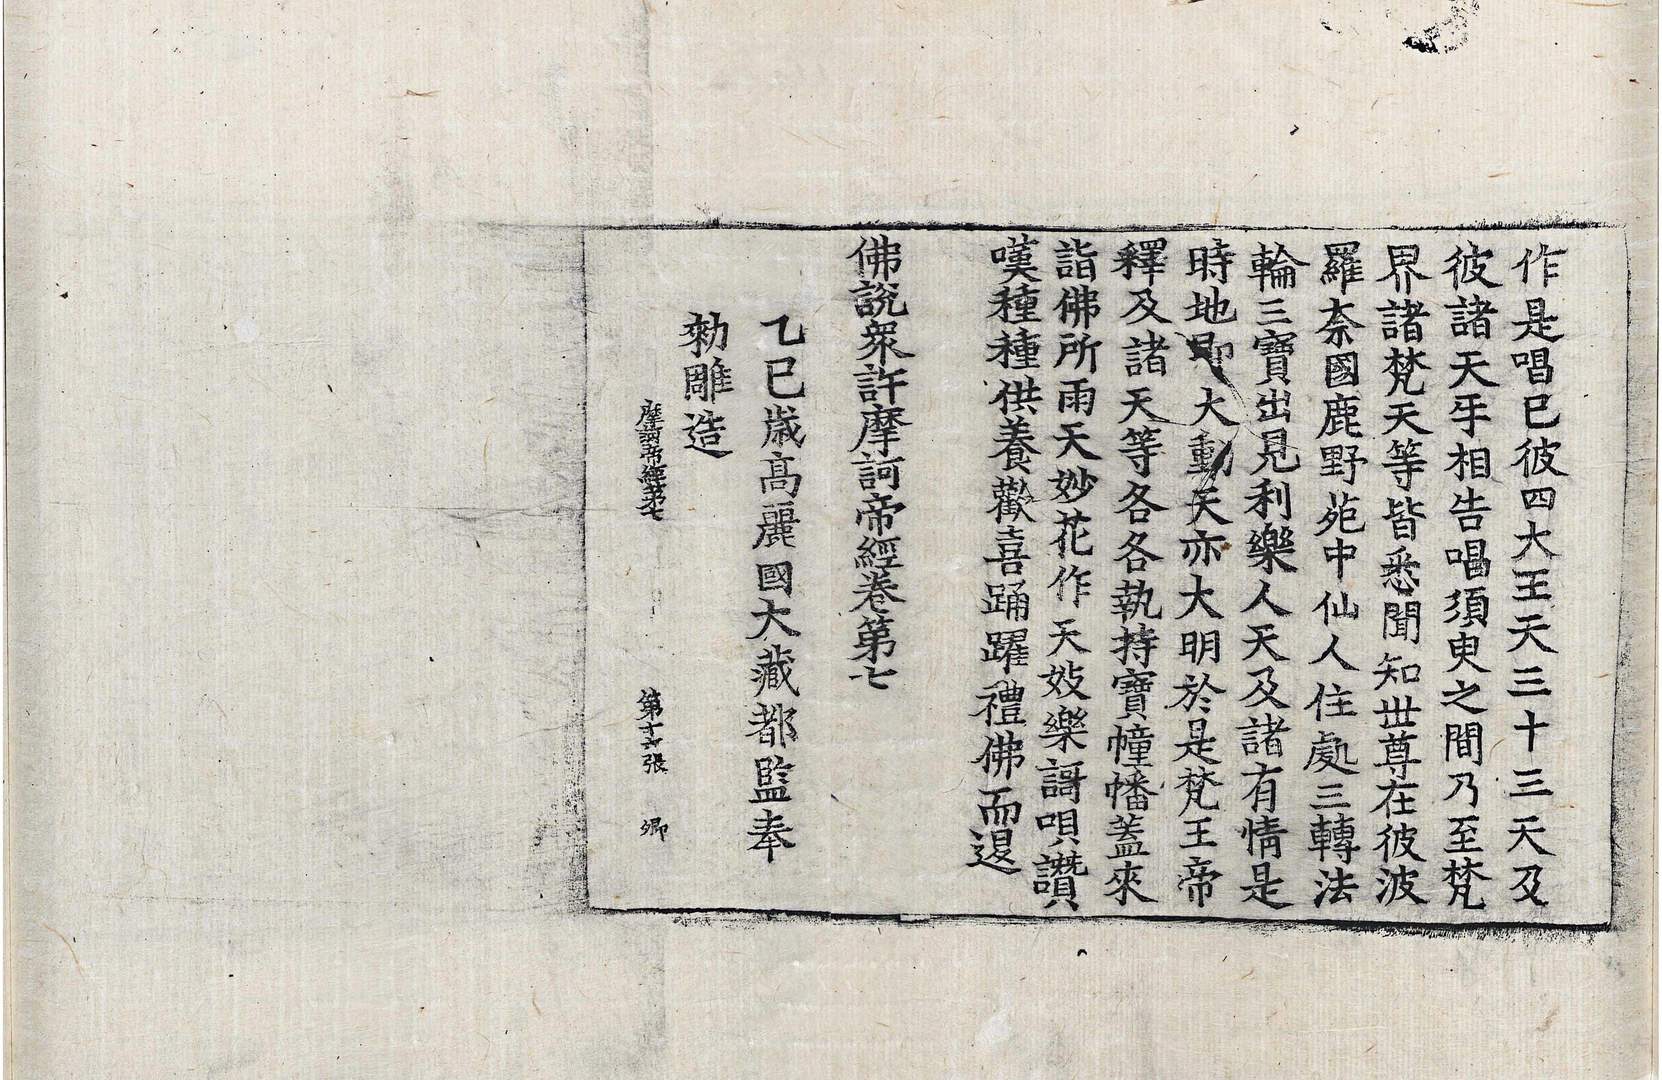 作是唱已彼四大王天三十三天及
彼諸天㸦相告唱須臾之間乃至梵
界諸梵天等皆悉聞知世尊在彼波
羅柰國鹿野苑中仙人住處三轉法
輪三寶出見利樂人天及諸有情是
時地即大動天亦大明於是梵王帝
釋及諸天等各各執持寶幢幡蓋來
詣佛所雨天妙花作天妓樂謌唄讚
嘆種種供養歡喜踊躍禮佛而退
佛說衆許摩訶帝經卷第七
乙巳歲高麗國大藏都監奉
勑雕造
摩訶帝經第七 第十六張 卿